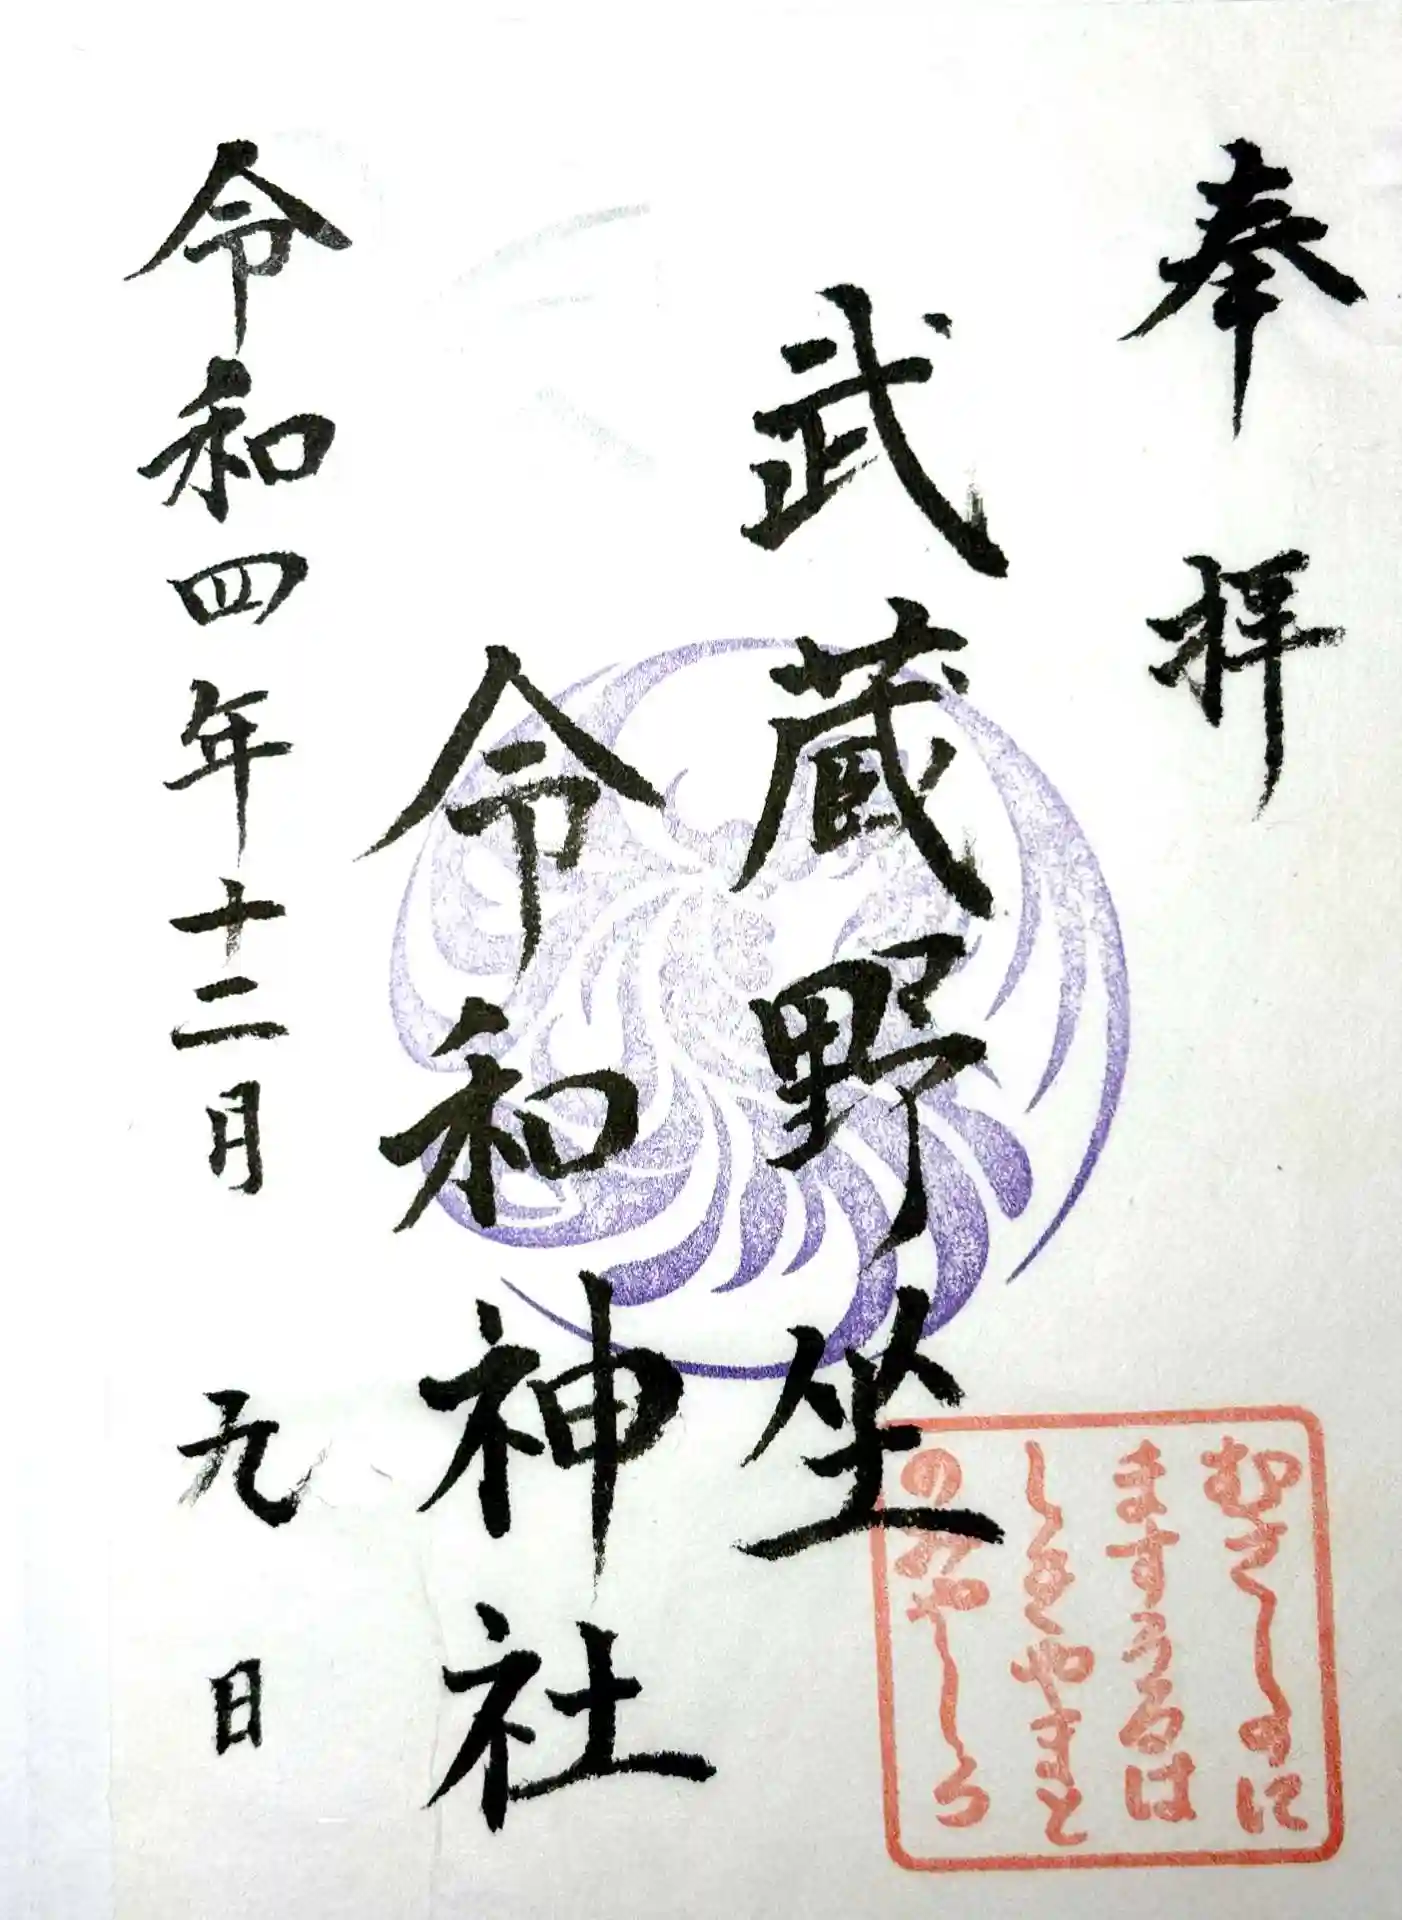 奉拝
武蔵野坐
令和神社
令和四年十二月 九日
むさしのに
ますうるは
しきやまと
のみやしろ